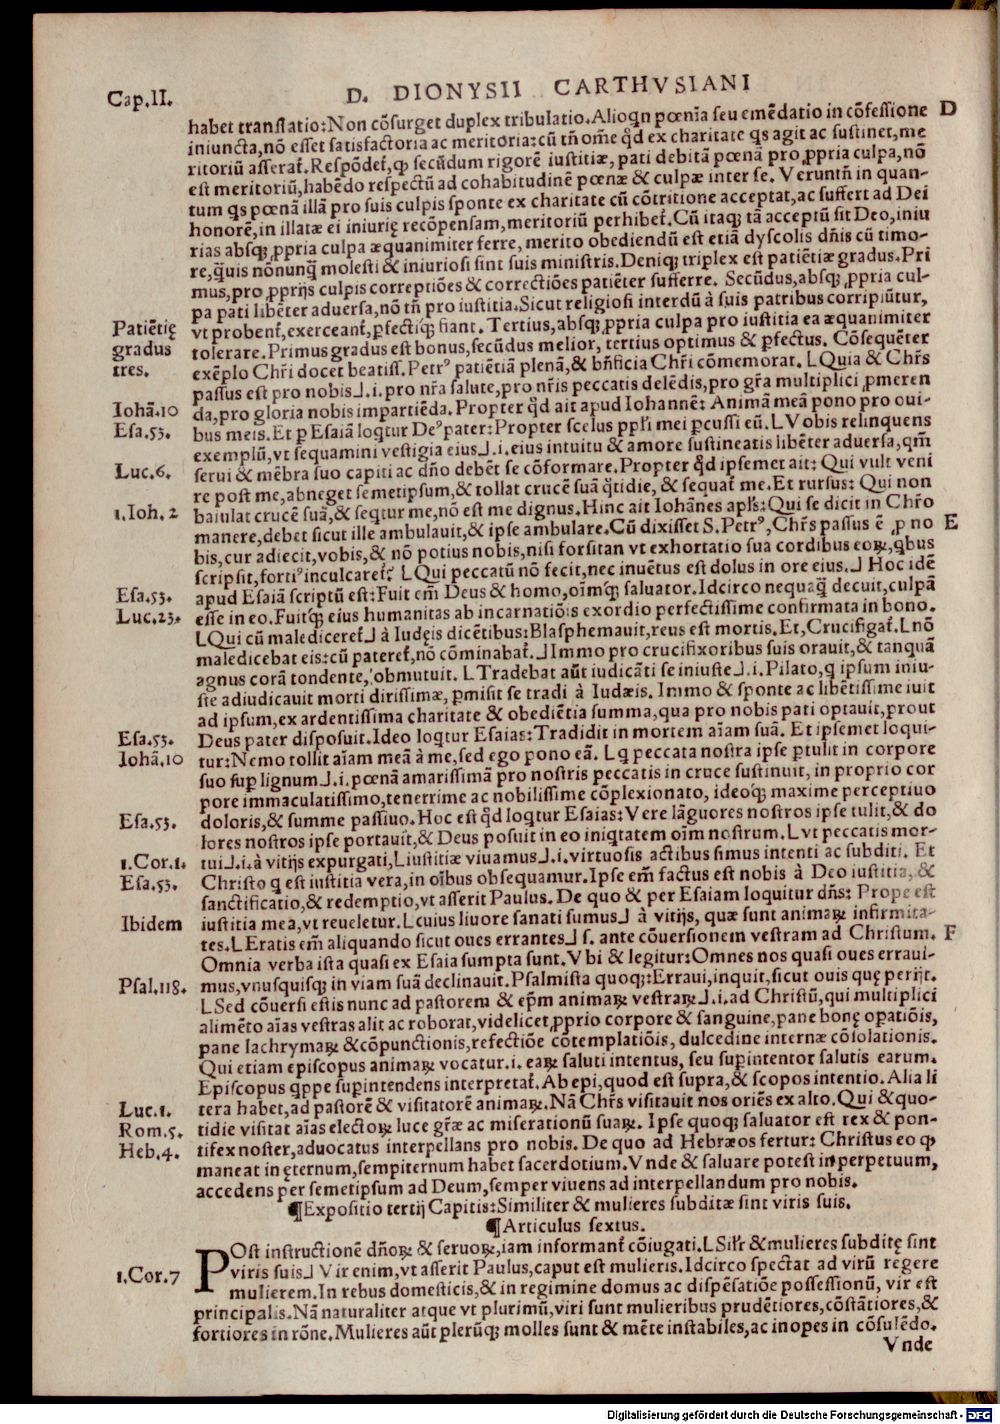 Cap.II.
D. DIONYSII CARTHVSIANI
habet translatio: Non cõsurget duplex tribulatio. Alioqn pœnia seu emẽdatio in cõfessione D
iniuncta, nõ esset satisfactoria ac meritoria: cũ tñ om̃e qd̃ ex charitate qs agit ac sustinet, me
ritoriũ asserat̃. Respõdet̃, qꝫ secũdum rigorẽ iustitiæ, pati debitã pœnã pro ꝓpria culpa, nõ
est meritoriũ, habẽdo respectũ ad cohabitudinẽ pœnæ & culpæ inter se. Veruntñ in quan-
tum qs pœnã illã pro suis culpis sponte ex charitate cũ cõtritione acceptat, ac suffert ad Dei
honorẽ, in illatæ ei iniurię recõpensam, meritoriũ perhibet̃. Cũ itaqꝫ tã acceptũ sit Deo, iniu
rias absqꝫ ꝓpria culpa æquanimiter ferre, merito obediendũ est etiã dyscolis dñis cũ timo-
re, q̃uis nõnunq̃ molesti & iniuriosi sint suis ministris. Deniqꝫ triplex est patiẽtiæ gradus. Pri
mus, pro ꝓprijs culpis correptiões & correctiões patiẽter sufferre. Secũdus, absqꝫ ꝓpria cul-
pa pati libẽter aduersa, nõ tñ pro iustitia. Sicut religiosi interdũ à suis patribus corripiũtur,
Patiẽtię vt probent̃, exerceant̃, ꝑfectiqꝫ fiant. Tertius, absqꝫ ꝓpria culpa pro iustitia ea æquanimiter
gradus tolerare. Primus gradus est bonus, secũdus melior, tertius optimus & ꝑfectus. Cõsequẽter
tres. exẽplo Chr̃i docet beatiss. Petrꝰ patiẽtiã plenã, & bñficia Chr̃i cõmemorat. ⌊Quia & Chr̃s
passus est pro nobis⌋.i. pro nr̃a salute, pro nr̃is peccatis delẽdis, pro gr̃a multiplici ꝓmeren
Iohã.10 da, pro gloria nobis impartiẽda. Propter qd̃ ait apud Iohannẽ: Animã meã pono pro oui-
Esa.53. bus meis. Et ꝑ Esaiã loqtur Deꝰ pater: Propter scelus ppl̃i mei ꝑcussi eũ. ⌊Vobis relinquens
exemplũ, vt sequamini vestigia eius⌋.i. eius intuitu & amore sustineatis libẽter aduersa, qm̃
Luc.6. serui & mẽbra suo capiti ac dño debẽt se cõformare. Propter qd̃ ipsemet ait: Qui vult veni
re post me, abneget semetipsum, & tollat crucẽ suã q̃tidie, & sequat̃ me. Et rursus: Qui non
1.Ioh. 2 baiulat crucẽ suã, & seqtur me, nõ est me dignus. Hinc ait Iohãnes apl̃s: Qui se dicit in Chr̃o
manere, debet sicut ille ambulauit, & ipse ambulare. Cũ dixisset S. Petrꝰ, Chr̃s passus ẽ ꝓ no E
bis, cur adiecit, vobis, & nõ potius nobis, nisi forsitan vt exhortatio sua cordibus eoꝝ, qbus
scripsit, fortiꝰ inculcaret̃? ⌊Qui peccatũ nõ fecit, nec inuẽtus est dolus in ore eius.⌋ Hoc idẽ
Esa.53. apud Esaiã scriptũ est: Fuit em̃ Deus & homo, oim̃qꝫ saluator. Idcirco nequaq̃ decuit, culpã
Luc.23. esse in eo. Fuitqꝫ eius humanitas ab incarnatiõis exordio perfectissime confirmata in bono.
⌊Qui cũ malediceret̃⌋ à Iudęis dicẽtibus: Blasphemauit, reus est mortis. Et, Crucifigat̃. ⌊nõ
maledicebat eis: cũ pateret̃, nõ cõminabat̃.⌋ Immo pro crucifixoribus suis orauit, & tanquã
agnus corã tondente, obmutuit. ⌊Tradebat aũt iudicãti se iniuste⌋.i. Pilato, q ipsum iniu-
ste adiudicauit morti dirissimæ, ꝑmisit se tradi à Iudæis. Immo & sponte ac libẽtissime iuit
ad ipsum, ex ardentissima charitate & obediẽtia summa, qua pro nobis pati optauit, prout
Esa.53. Deus pater disposuit. Ideo loqtur Esaias: Tradidit in mortem aĩam suã. Et ipsemet loqui-
Iohã.10 tur: Nemo tollit aĩam meã à me, sed ego pono eã. ⌊q peccata nostra ipse ꝑtulit in corpore
suo suꝑ lignum⌋.i. pœnã amarissimã pro nostris peccatis in cruce sustinuit, in proprio cor
pore immaculatissimo, tenerrime ac nobilissime cõplexionato, ideoqꝫ maxime perceptiuo
Esa.53. doloris, & summe passiuo. Hoc est qd̃ loqtur Esaias: Vere lãguores nostros ipse tulit, & do
lores nostros ipse portauit, & Deus posuit in eo iniqtatem oim̃ nostrum. ⌊vt peccatis mor-
1.Cor.1. tui⌋.i. à vitijs expurgati, ⌊iustitiæ viuamus⌋.i. virtuosis actibus simus intenti ac subditi. Et
Esa.53. Christo q est iustitia vera, in oĩbus obsequamur. Ipse em̃ factus est nobis à Deo iustitia, &
sanctificatio, & redemptio, vt asserit Paulus. De quo & per Esaiam loquitur dñs: Prope est
Ibidem iustitia mea, vt reueletur. ⌊cuius liuore sanati sumus⌋ à vitijs, quæ sunt animaꝝ infirmita-
tes. ⌊Eratis em̃ aliquando sicut oues errantes⌋ s. ante cõuersionem vestram ad Christum. F
Omnia verba ista quasi ex Esaia sumpta sunt. Vbi & legitur: Omnes nos quasi oues erraui-
Psal.118. mus, vnusquisqꝫ in viam suã declinauit. Psalmista quoqꝫ: Erraui, inquit, sicut ouis quę perijt.
⌊Sed cõuersi estis nunc ad pastorem & ep̃m animaꝝ vestraꝝ⌋.i. ad Christũ, qui multiplici
alimẽto aĩas vestras alit ac roborat, videlicet ꝓprio corpore & sanguine, pane bonę opatiõis,
pane lachrymaꝝ & cõpunctionis, refectiõe cõtemplatiõis, dulcedine internæ cõsolationis.
Qui etiam episcopus animaꝝ vocatur.i. eaꝝ saluti intentus, seu suꝑintentor salutis earum.
Episcopus qppe suꝑintendens interpretat̃. Ab epi, quod est supra, & scopos intentio. Alia li
Luc.1. tera habet, ad pastorẽ & visitatorẽ animaꝝ. Nã Chr̃s visitauit nos oriẽs ex alto. Qui & quo-
Rom.5. tidie visitat aĩas electoꝝ luce gr̃æ ac miserationũ suaꝝ. Ipse quoqꝫ saluator est rex & pon-
Heb.4. tifex noster, aduocatus interpellans pro nobis. De quo ad Hebræos fertur: Christus eo qꝫ
maneat in ęternum, sempiternum habet sacerdotium. Vnde & saluare potest in perpetuum,
accedens per semetipsum ad Deum, semper viuens ad interpellandum pro nobis.
¶Expositio tertij Capitis: Similiter & mulieres subditæ sint viris suis.
¶Articulus sextus.
POst instructionẽ dñoꝝ & seruoꝝ, iam informant̃ cõiugati. ⌊Sil̃r & mulieres subditę sint
1.Cor.7 viris suis⌋ Vir enim, vt asserit Paulus, caput est mulieris. Idcirco spectat ad virũ regere
mulierem. In rebus domesticis, & in regimine domus ac dispẽsatiõe possessionũ, vir est
principalis. Nã naturaliter atque vt plurimũ, viri sunt mulieribus prudẽtiores, cõstãtiores, &
fortiores in rõne. Mulieres aũt plerũqꝫ molles sunt & mẽte instabiles, ac inopes in cõsulẽdo.
Vnde
Digitalisierung gefördert durch die Deutsche Forschungsgemeinschaft - DFG